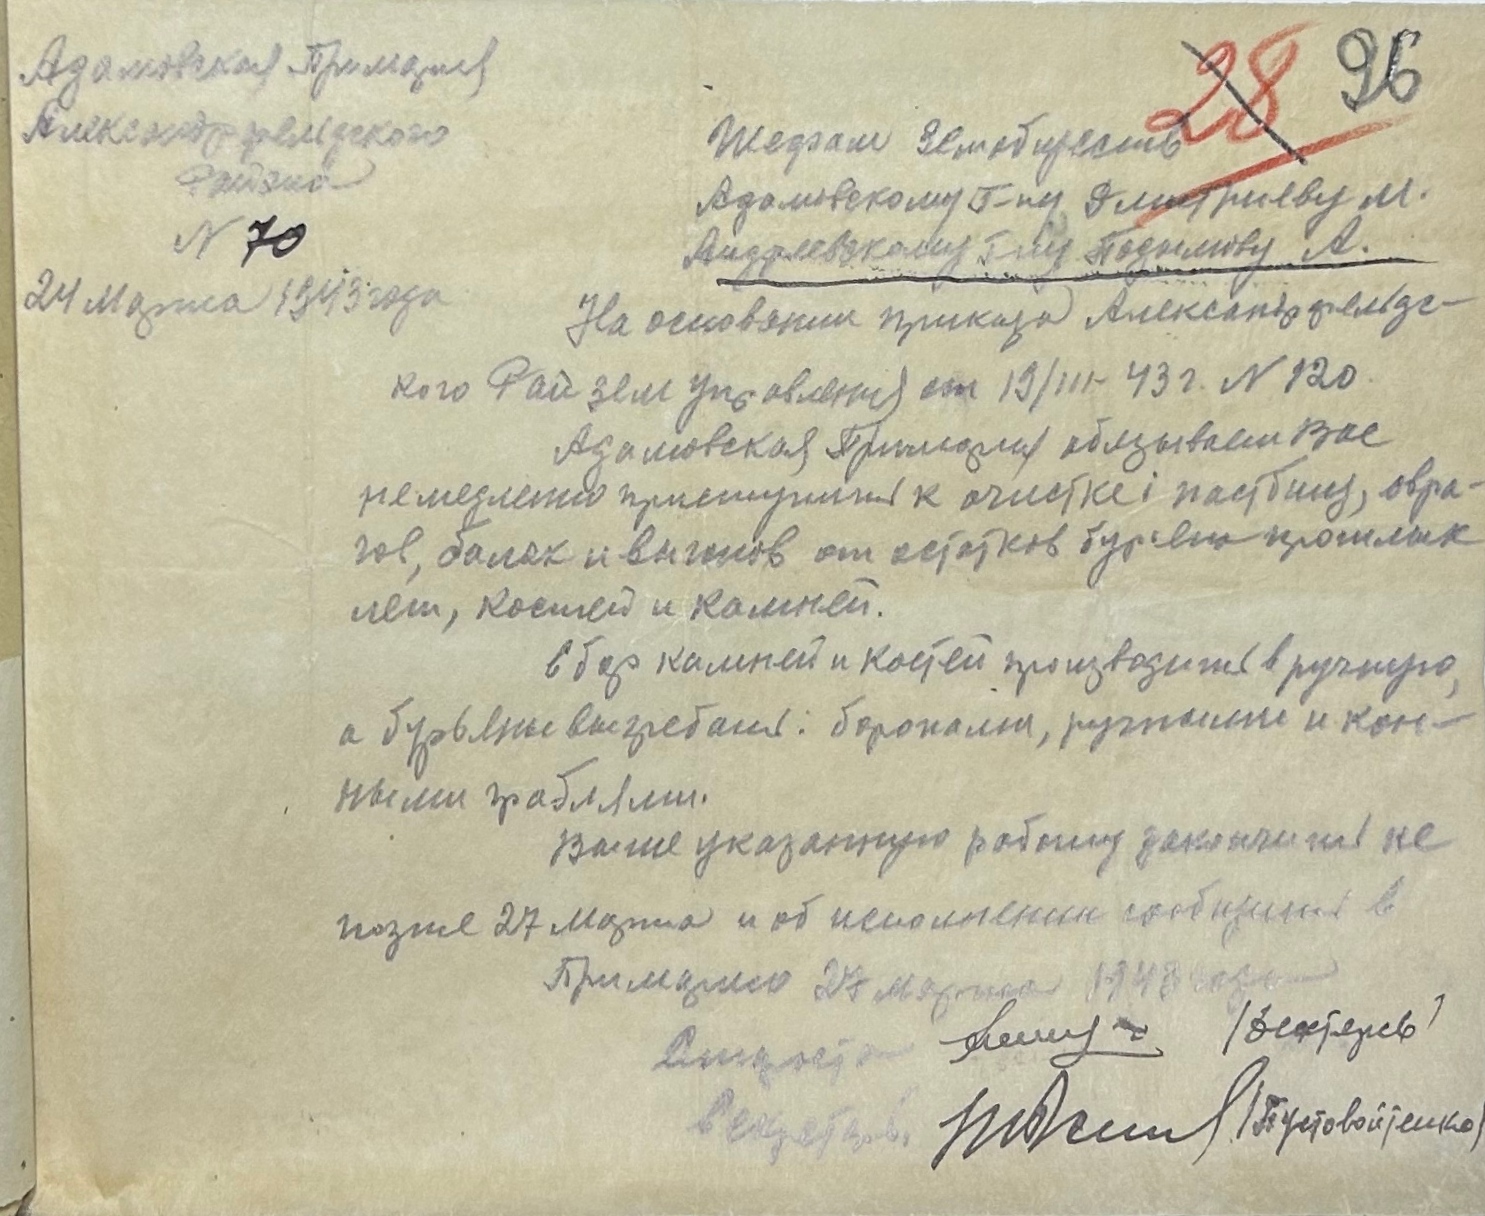 28 96
Адамовская Примария
Александрфельдского
Района
N 70
24 Марта 1943 года
Шефам Земобществ
Адамовскому Г-ну Дмитриеву М.
Андреевскому Г-ну Подымову А.
На основании приказа Александрфельдс-
кого Райземуправления от 19/III-43 г. N 120
Адамовская Примария обязывает Вас
немедленно приступить к очистке: пастбищ, овра-
гов, балок и выгонов от остатков бурьяна прошлых
лет, костей и камней.
Сбор камней и костей производить в ручную,
а бурьяны выгребать: боронами, ручными и кон-
ными граблями.
Выше указанную работу закончить не
позже 27 Марта и об исполнении сообщить в
Примарию 27 марта 1943 года
Староста /Бехтерев/
Секретарь /Пустовойтенко/